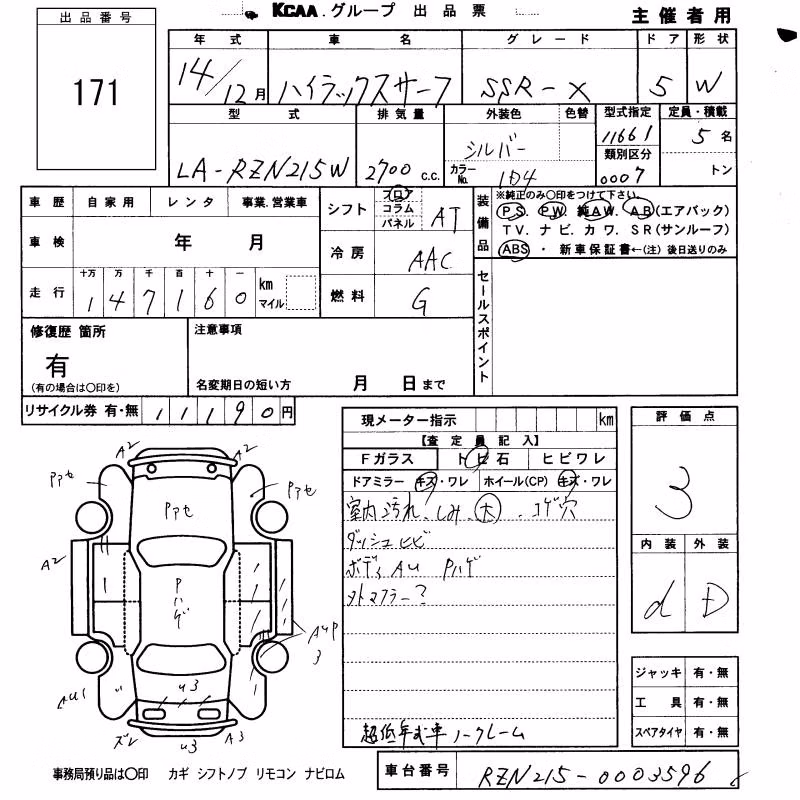 KCAA.グループ 出品票
主催者用
出品番号
171
年式 車名 グレード ドア 形状
14/12月 ハイラックスサーフ SSR-X 5 W
型式 排気量 外装色 色替 型式指定 定員・積載
LA-RZN215W 2700 c.c. シルバー 11661 5名
カラーNo. 1D4 類別区分 0007 トン
車歴 自家用 レンタ 事業.営業車
シフト フロア コラム パネル AT
装備品
※純正のみ〇印をつけて下さい
PS. PW. 純AW. AB(エアバック)
TV. ナビ. カワ. SR(サンルーフ)
ABS ・ 新車保証書←(注) 後日送りのみ
車検 年 月
冷房 AAC
走行 十万 万 千 百 十 一
147160 km マイル
燃料 G
セールスポイント
修復歴 箇所
有
(有の場合は〇印を)
注意事項
名変期日の短い方 月 日まで
リサイクル券 有・無 11190円
現メーター指示 km
【査定員記入】
Fガラス トビ石 ヒビワレ
ドアミラー キズ・ワレ ホイール(CP) キズ・ワレ
室内汚れ、しみ、大、コゲ穴
ダッシュヒビ
ボディAU Pハゲ
外マフラー?
超低年式車 ノークレーム
評価点
3
内装 外装
d D
ジャッキ 有・無
工具 有・無
スペアタイヤ 有・無
A2 A2
Pアセ Pアセ
Pアセ
A2
Pハゲ
AUP
3
AU1
U3
ズレ U3 A3
事務局預り品は〇印 カギ シフトノブ リモコン ナビロム
車台番号 RZN215-0003596